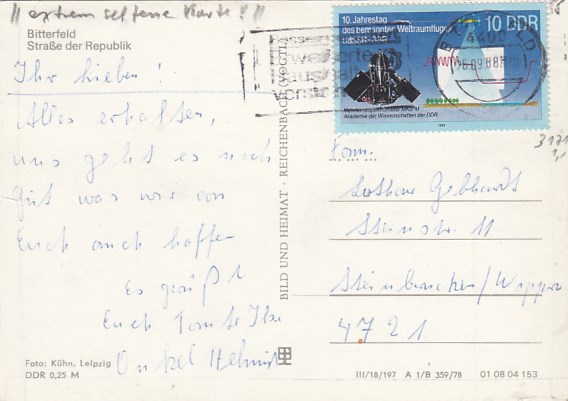 "extrem seltene Karte!"
Bitterfeld
Straße der Republik
Ihr Lieben!
Alles erhalten,
uns geht es noch
gut was wir von
Euch auch hoffen
Es grüßt
Euch Tante Ilse
Onkel Helmut
Foto: Kühn, Leipzig
DDR 0,25 M
BILD UND HEIMAT · REICHENBACH (VOGTL)
10. Jahrestag
des bemannten Weltraumfluges
UdSSR-DDR
10 DDR
Akademie der Wissenschaften der DDR
4400
Fam.
Lothar Gebhardt
Steinstr. 11
Steinbrücken/Wipper
4721
III/18/197 A 1/B 359/78 01 08 04 153